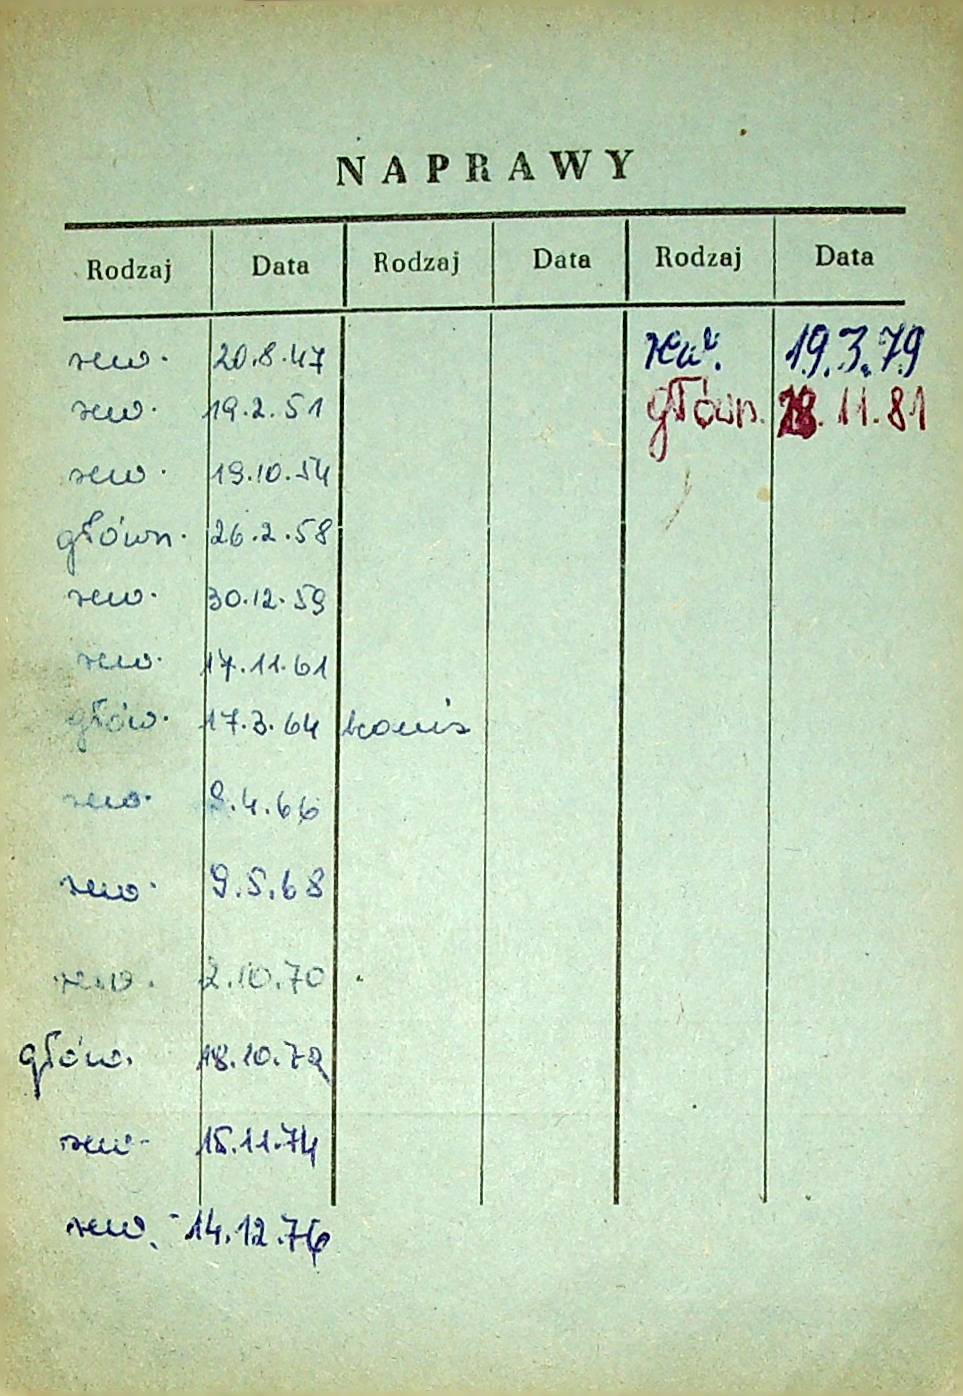 NAPRAWY
Rodzaj Data Rodzaj Data Rodzaj Data
rew. 20.8.47 rew. 19.3.79
rew. 19.2.51 główn. 28.11.81
rew. 19.10.54
główn. 26.2.58
rew. 30.12.59
rew. 17.11.61
głów. 17.3.64
rew. 9.4.66
rew. 9.5.68
rew. 2.10.70
głów. 18.10.72
rew. 15.11.74
rew. - 14.12.76